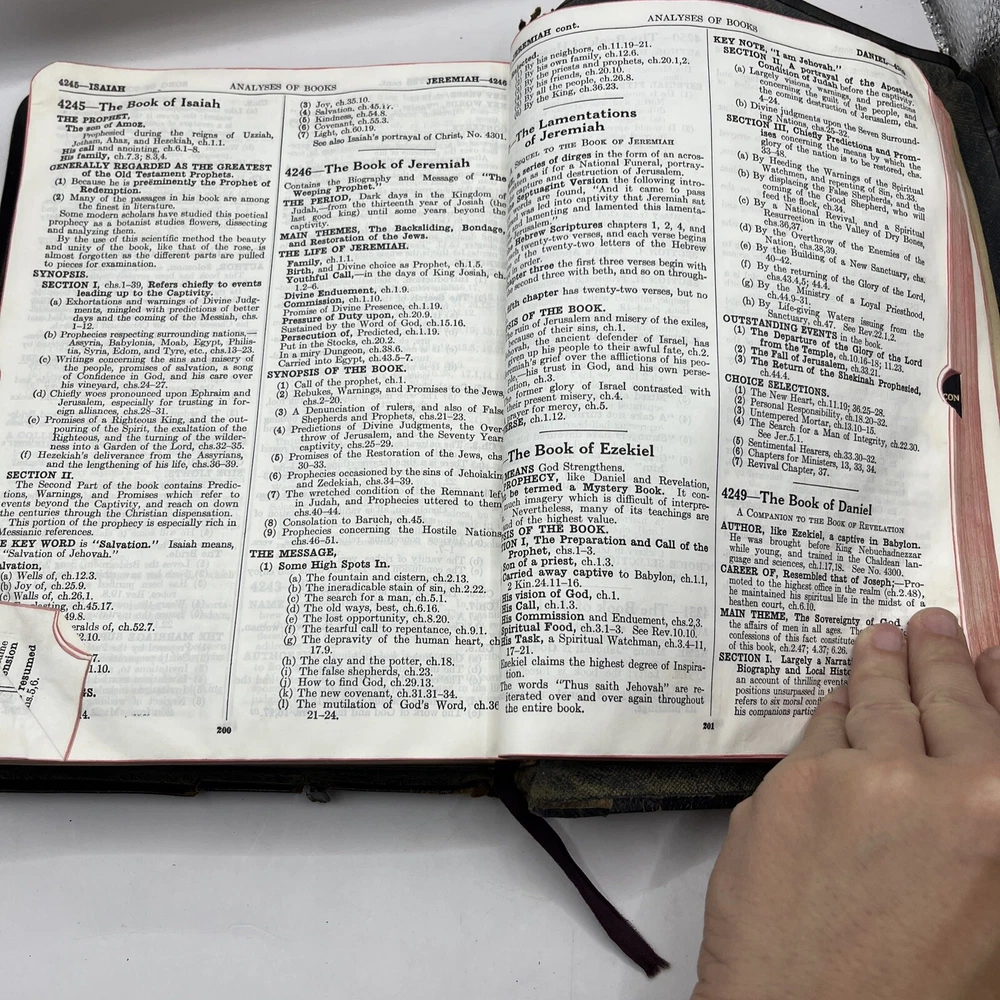 4245—ISAIAH
ANALYSES OF BOOKS
JEREMIAH—4246
4245—The Book of Isaiah
THE PROPHET,
The son of Amoz.
Prophesied during the reigns of Uzziah,
Jotham, Ahaz, and Hezekiah, ch.1.1.
His call and anointing, ch.6.1–8.
His family, ch.7.3; 8.3,4.
GENERALLY REGARDED AS THE GREATEST
of the Old Testament Prophets.
(1) Because he is preëminently the Prophet of
Redemption.
(2) Many of the passages in his book are among
the finest in literature.
Some modern scholars have studied this poetical
prophecy as a botanist studies flowers, dissecting
and analyzing them.
By the use of this scientific method the beauty
and unity of the book, like that of the rose, is
almost forgotten as the different parts are pulled
to pieces for examination.
SYNOPSIS.
SECTION I, chs.1–39, Refers chiefly to events
leading up to the Captivity.
(a) Exhortations and warnings of Divine Judg-
ments, mingled with predictions of better
days and the coming of the Messiah, chs.
1–12.
(b) Prophecies respecting surrounding nations,—
Assyria, Babylonia, Moab, Egypt, Philis-
tia, Syria, Edom, and Tyre, etc., chs.13–23.
(c) Writings concerning the sins and misery of
the people, promises of salvation, a song
of Confidence in God, and his care over
his vineyard, chs.24–27.
(d) Chiefly woes pronounced upon Ephraim and
Jerusalem, especially for trusting in for-
eign alliances, chs.28–31.
(e) Promises of a Righteous King, and the out-
pouring of the Spirit, the exaltation of the
Righteous, and the turning of the wilder-
ness into a Garden of the Lord, chs.32–35.
(f) Hezekiah's deliverance from the Assyrians,
and the lengthening of his life, chs.36–39.
SECTION II.
The Second Part of the book contains Predic-
tions, Warnings, and Promises which refer to
events beyond the Captivity, and reach on down
the centuries through the Christian dispensation.
This portion of the prophecy is especially rich in
Messianic references.
E KEY WORD is "Salvation." Isaiah means,
"Salvation of Jehovah."
alvation,
(a) Wells of, ch.12.3.
(b) Joy of, ch.25.9.
(c) Walls of, ch.26.1.
lasting, ch.45.17.
49.8.
eralds of, ch.52.7.
2.10.
7.
1.10.
S.
4.
nsion
resumed
us.5,6.
(3) Joy, ch.35.10.
(4) Salvation, ch.45.17.
(5) Kindness, ch.54.8
(6) Covenant, ch.55.3.
(7) Light, ch.60.19.
See also Isaiah's portrayal of Christ, No. 4301.
4246—The Book of Jeremiah
Contains the Biography and Message of "The
Weeping Prophet."
THE PERIOD, Dark days in the Kingdom
Judah,—from the thirteenth year of Josiah (the
last good king) until some years beyond the
captivity.
MAIN THEMES, The Backsliding, Bondage,
and Restoration of the Jews.
THE LIFE OF JEREMIAH.
Family, ch.1.1.
Birth, and Divine choice as Prophet, ch.1.5.
Youthful Call,—in the days of King Josiah, ch.
1.2–6.
Divine Enduement, ch.1.9.
Commission, ch.1.10.
Promise of Divine Presence, ch.1.19.
Pressure of Duty upon, ch.20.9.
Sustained by the Word of God, ch.15.16.
Persecution of, Predicted, ch.1.19.
Put in the Stocks, ch.20.2.
In a miry Dungeon, ch.38.6.
Carried into Egypt, ch.43.5–7.
SYNOPSIS OF THE BOOK.
(1) Call of the prophet, ch.1.
(2) Rebukes, Warnings, and Promises to the Jews,
chs.2–20.
(3) A Denunciation of rulers, and also of False
Shepherds and Prophets, chs.21–23.
(4) Predictions of Divine Judgments, the Over-
throw of Jerusalem, and the Seventy Years
captivity, chs.25–29.
(5) Promises of the Restoration of the Jews, chs.
30–33.
(6) Prophecies occasioned by the sins of Jehoiakim
and Zedekiah, chs.34–39.
(7) The wretched condition of the Remnant left
in Judah, and Prophecies uttered to them
chs.40–44.
(8) Consolation to Baruch, ch.45.
(9) Prophecies concerning the Hostile Nations,
chs.46–51.
THE MESSAGE,
(1) Some High Spots In.
(a) The fountain and cistern, ch.2.13.
(b) The ineradicable stain of sin, ch.2.22.
(c) The search for a man, ch.5.1.
(d) The old ways, best, ch.6.16.
(e) The lost opportunity, ch.8.20.
(f) The tearful call to repentance, ch.9.1.
(g) The depravity of the human heart, ch
17.9.
(h) The clay and the potter, ch.18.
(i) The false shepherds, ch.23.
(j) How to find God, ch.29.13.
(k) The new covenant, ch.31.31–34.
(l) The mutilation of God's Word, ch.36
21–24.
200
JEREMIAH cont.
ANALYSES OF BOOKS
DANIEL,
jected.
By his neighbors, ch.11.19–21.
By his own family, ch.12.6.
By the priests and prophets, ch.20.1,2.
By his friends, ch.20.10.
By all the people, ch.26.8.
By the King, ch.36.23.
The Lamentations
of Jeremiah
SEQUEL TO THE BOOK OF JEREMIAH
a series of dirges in the form of an acros-
as if for a National Funeral, portray-
capture and destruction of Jerusalem.
Septuagint Version the following intro-
found, "And it came to pass
was led into captivity that Jeremiah sat
lamenting and lamented this lamenta-
Jerusalem."
Hebrew Scriptures chapters 1, 2, 4, and
twenty-two verses, and each verse begins
of the twenty-two letters of the Hebrew
in order.
chapter three the first three verses begin with
second three with beth, and so on through-
chapter has twenty-two verses, but no
SIS OF THE BOOK.
ruin of Jerusalem and misery of the exiles,
because of their sins, ch.1.
hovah, the ancient defender of Israel, has
given up his people to their awful fate, ch.2.
grief over the afflictions of his peo-
his trust in God, and his own perse-
tion, ch.3.
former glory of Israel contrasted with
their present misery, ch.4.
prayer for mercy, ch.5.
ERSE, ch.1.12.
The Book of Ezekiel
MEANS God Strengthens.
PROPHECY, like Daniel and Revelation,
be termed a Mystery Book. It con-
much imagery which is difficult of interpre-
Nevertheless, many of its teachings are
of the highest value.
SIS OF THE BOOK.
ION I, The Preparation and Call of the
Prophet, chs.1–3.
Son of a priest, ch.1.3.
Carried away captive to Babylon, ch.1.1,
2 Kin.24.11–16.
His vision of God, ch.1.
His Call, ch.1.3.
His Commission and Enduement, chs.2,3.
Spiritual Food, ch.3.1–3. See Rev.10.10.
His Task, a Spiritual Watchman, ch.3.4–11,
17–21.
Ezekiel claims the highest degree of Inspira-
tion.
The words "Thus saith Jehovah" are re-
iterated over and over again throughout
the entire book.
201
KEY NOTE, "I am Jehovah."
SECTION II, A portrayal of the Apostate
Condition of Judah before the captivity.
(a) Largely visions, warnings, and predictions
concerning the guilt of the people, and
the coming destruction of Jerusalem, chs.
4–24.
(b) Divine Judgments upon the Seven Surround-
ing Nations, chs.25–32.
SECTION III, Chiefly Predictions and Prom-
ises concerning the means by which the
glory of the nation is to be restored, chs.
33–48.
(a) By Heeding the Warnings of the Spiritual
Watchmen, and repenting of Sin, ch.33.
(b) By displacing the False Shepherds, and the
coming of the Good Shepherd, who will
feed the flock, ch.34
(c) By a National Revival, and a Spiritual
Resurrection in the Valley of Dry Bones,
chs.36,37.
(d) By the Overthrow of the Enemies of the
Nation, chs.38,39.
(e) By the Building of a New Sanctuary, chs.
40–42.
(f) By the returning of the Glory of the Lord,
chs.43.4,5; 44.4.
(g) By the Ministry of a Loyal Priesthood,
ch.44.9–31.
(h) By Life-giving Waters issuing from the
Sanctuary, ch.47. See Rev.22.1,2.
OUTSTANDING EVENTS in the book.
(1) The Departure of the Glory of the Lord
from the Temple, ch.10.16–18; 11.23.
(2) The Fall of Jerusalem, ch.33.21.
(3) The Return of the Shekinah Prophesied,
ch.44.4.
CHOICE SELECTIONS.
(1) The New Heart, ch.11.19; 36.25–28.
(2) Personal Responsibility, ch.18.20–32.
(3) Untempered Mortar, ch.13.10–15.
(4) The Search for a Man of Integrity, ch.22.30.
See Jer.5.1.
(5) Sentimental Hearers, ch.33.30–32.
(6) Chapters for Ministers, 13, 33, 34.
(7) Revival Chapter, 37.
4249—The Book of Daniel
A COMPANION TO THE BOOK OF REVELATION
AUTHOR, like Ezekiel, a captive in Babylon.
He was brought before King Nebuchadnezzar
while young, and trained in Chaldean lan-
guage and sciences, ch.1.17,18. See No. 4300.
CAREER OF, Resembled that of Joseph;—Pro-
moted to the highest office in the realm (ch.2.48),
he maintained his spiritual life in the midst of a
heathen court, ch.6.10.
MAIN THEME, The Sovereignty of God
the affairs of men in all ages. The
confessions of this fact constitute
of this book, ch.2.47; 4.37; 6.26.
SECTION I. Largely a Narrat
Biography and Local Histo
an account of thrilling events
positions unsurpassed in th
refers to six moral confl
his companions partici
CON